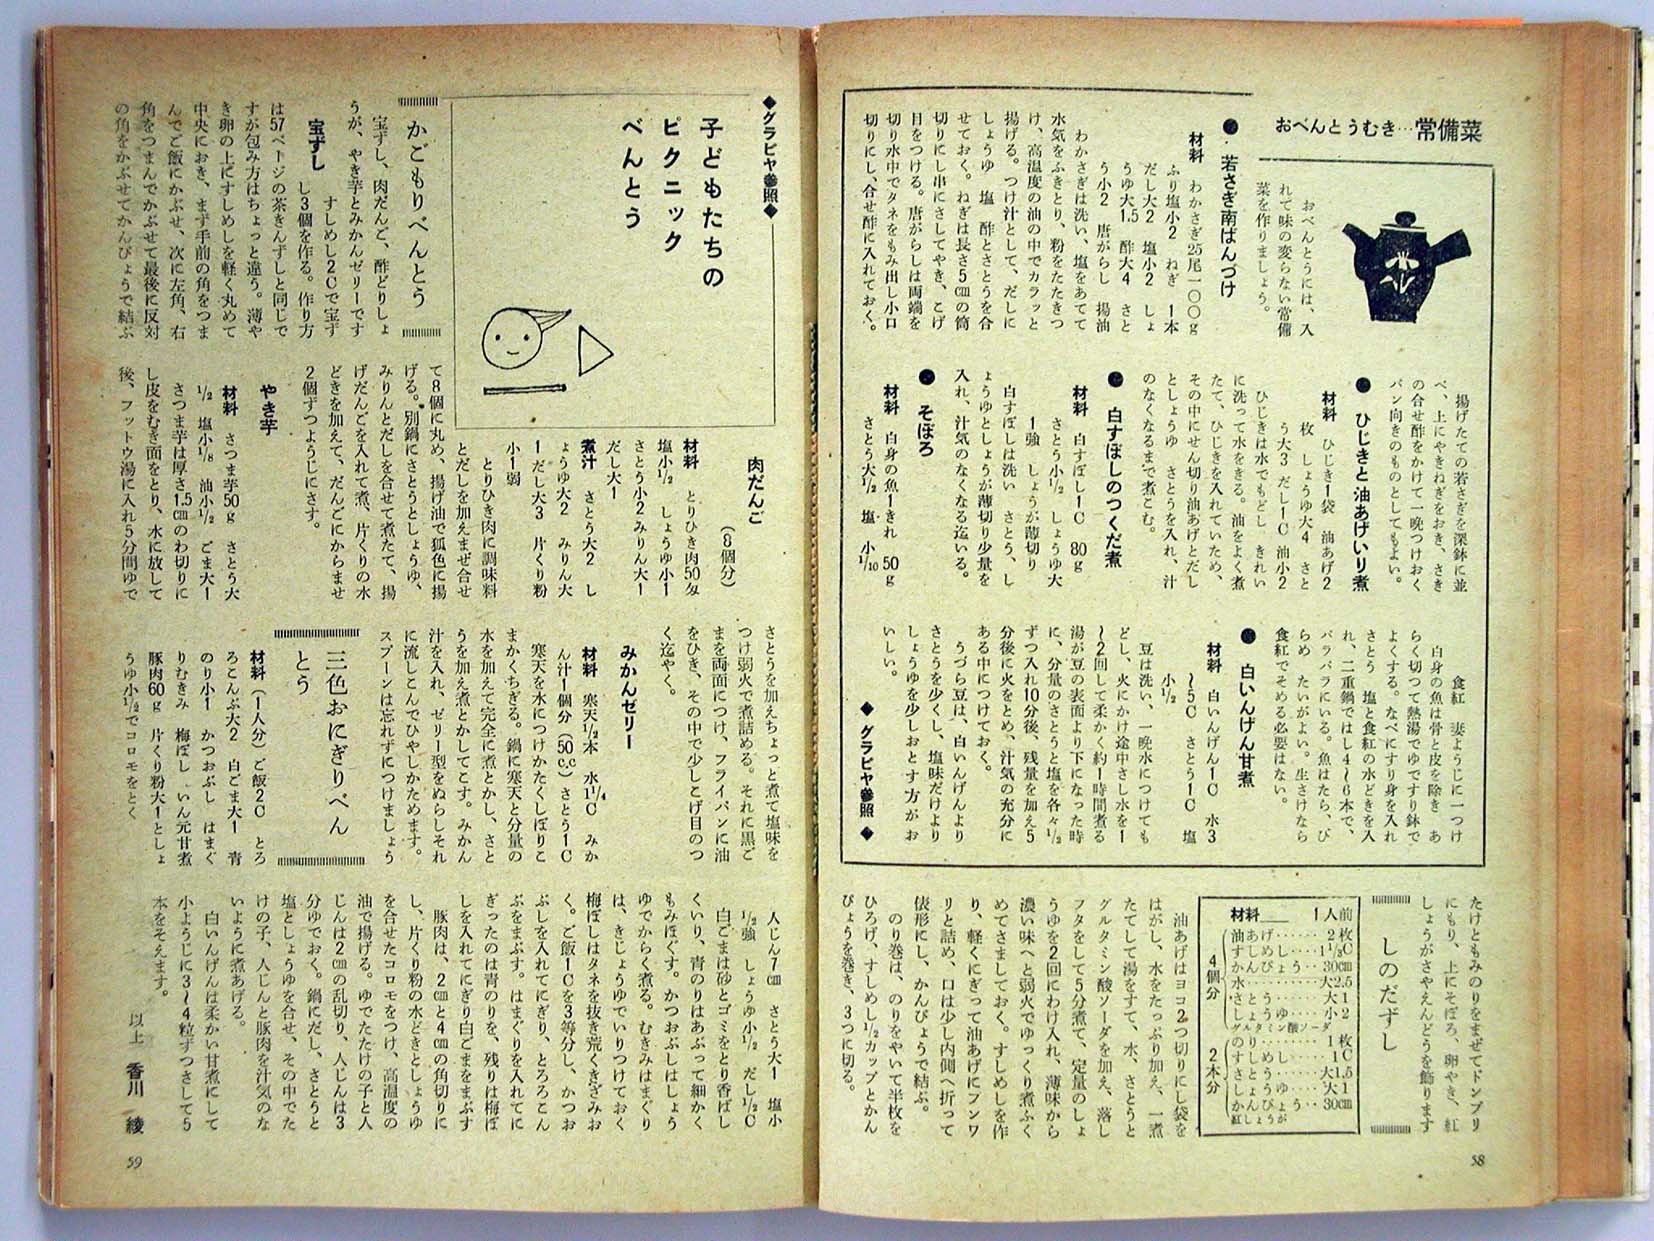 おべんとうむき…常備菜
おべんとうには、入
れて味の変らない常備
菜を作りましょう。
● 若さぎ南ばんづけ
材料 わかさぎ25尾一〇〇g
ふり塩小2 ねぎ 1本
だし大2 塩小2 しょ
うゆ大1.5 酢大4 さと
う小2 唐がらし 揚油
わかさぎは洗い、塩をあてて
水気をふきとり、粉をたたきつ
け、高温度の油の中でカラッと
揚げる。つけ汁として、だしに
しょうゆ 塩 酢とさとうを合
せておく。ねぎは長さ5cmの筒
切りにし串にさしてやき、こげ
目をつける。唐がらしは両端を
切り水中でタネをもみ出し小口
切りにし、合せ酢に入れておく。
揚げたての若さぎを深鉢に並
べ、上にやきねぎをおき、さき
の合せ酢をかけて一晩つけおく
パン向きのものとしてもよい。
● ひじきと油あげいり煮
材料 ひじき1袋 油あげ2
枚 しょうゆ大4 さと
う大3 だし1C 油小2
ひじきは水でもどし きれい
に洗って水をきる。油をよく煮
たて、ひじきを入れていため、
その中にせん切り油あげとだし
としょうゆ さとうを入れ、汁
のなくなるまで煮こむ。
● 白すぼしのつくだ煮
材料 白すぼし1C 80g
さとう小1/2 しょうゆ大
1強 しょうが薄切り
白すぼしは洗い さとう、し
ょうゆとしょうが薄切り少量を
入れ、汁気のなくなる迄いる。
● そぼろ
材料 白身の魚1きれ 50g
さとう大1/2 塩 小1/10
食紅 妻ようじに一つけ
白身の魚は骨と皮を除き あ
らく切つて熱湯でゆですり鉢で
よくする。なべにすり身を入れ
さとう 塩と食紅の水どきを入
れ、二重鍋ではし4〜6本で、
パラパラにいる。魚はたら、ひ
らめ たいがよい。生さけなら
食紅でそめる必要はない。
● 白いんげん甘煮
材料 白いんげん1C 水3
〜5C さとう1C 塩
小1/2
豆は洗い、一晩水につけても
どし、火にかけ途中さし水を1
〜2回して柔かく約1時間煮る
湯が豆の表面より下になった時
に、分量のさとうと塩を各々1/2
ずつ入れ10分後、残量を加え5
分後に火をとめ、汁気の充分に
ある中につけておく。
うづら豆は、白いんげんより
さとうを少くし、塩味だけより
しょうゆを少しおとす方がお
いしい。
◆グラビヤ参照◆
たけとともみのりをまぜてドンブリ
にもり、上にそぼろ、卵やき、紅
しょうがさやえんどうを飾ります
しのだずし
材料 1人前
4個分
油あげ……2枚
すしめし…1 1/3C
かんぴょう…30cm
水……大2.5
さとう…大1
しょうゆ…小2
グルタミン酸ソーダ
2本分
のり……1枚
すしめし…1C
さとう…大1.5
しょうゆ…大1
かんぴょう…30cm
紅しょうが
油あげはヨコ2つ切りにし袋を
はがし、水をたっぷり加え、一煮
たてして湯をすて、水、さとうと
グルタミン酸ソーダを加え、落し
フタをして5分煮て、定量のしょ
うゆを2回にわけ入れ、薄味から
濃い味へと弱火でゆっくり煮ふく
めてさましておく。すしめしを作
り、軽くにぎって油あげにフンワ
リと詰め、口は少し内側へ折って
俵形にし、かんぴょうで結ぶ。
のり巻は、のりをやいて半枚を
ひろげ、すしめし1/2カップとかん
ぴょうを巻き、3つに切る。
58
◆グラビヤ参照◆
子どもたちの
ピクニック
べんとう
かごもりべんとう
宝ずし、肉だんご、酢どりしょ
うが、やき芋とみかんゼリーです
宝ずし
すしめし2Cで宝ず
し3個を作る。作り方
は57ページの茶きんずしと同じで
すが包み方はちょっと違う。薄や
き卵の上にすしめしを軽く丸めて
中央におき、まず手前の角をつま
んでご飯にかぶせ、次に左角、右
角をつまんでかぶせて最後に反対
の角をかぶせてかんぴょうで結ぶ
肉だんご
(8個分)
材料 とりひき肉50匁
塩小1/2 しょうゆ小1
さとう小2みりん大1
だし大1
煮汁 さとう大2 し
ょうゆ大2 みりん大
1 だし大3 片くり粉
小1弱
とりひき肉に調味料
とだしを加えまぜ合せ
て8個に丸め、揚げ油で狐色に揚
げる。別鍋にさとうとしょうゆ、
みりんとだしを合せて煮たて、揚
げだんごを入れて煮、片くりの水
どきを加えて、だんごにからませ
2個ずつようじにさす。
やき芋
材料 さつま芋50g さとう大
1/2 塩小1/8 油小1/2 ごま大1
さつま芋は厚さ1.5cmのわ切りに
し皮をむき面をとり、水に放して
後、フットウ湯に入れ5分間ゆで
さとうを加えちょっと煮て塩味を
つけ弱火で煮詰める。それに黒ご
まを両面につけ、フライパンに油
をひき、その中で少しこげ目のつ
く迄やく。
みかんゼリー
材料 寒天1/2本 水1 1/4C みか
ん汁1個分(50c.c)さとう1C
寒天を水につけかたくしぼりこ
まかくちぎる。鍋に寒天と分量の
水を加えて完全に煮とかし、さと
うを加え煮とかしてこす。みかん
汁を入れ、ゼリー型をぬらしそれ
に流しこんでひやしかためます。
スプーンは忘れずにつけましょう
三色おにぎりべん
とう
材料(1人分)ご飯2C とろ
ろこんぶ大2 白ごま大1 青
のり小1 かつおぶし はまぐ
りむきみ 梅ぼし いん元甘煮
豚肉60g 片くり粉大1としょ
うゆ小1/2でコロモをとく
人じん7cm さとう大1 塩小
1/2強 しょうゆ小1/2 だし1/2C
白ごまは砂とゴミをとり香ばし
くいり、青のりはあぶって細かく
もみほぐす。かつおぶしはしょう
ゆでからく煮る。むきみはまぐり
は、きじょうゆでいりつけておく
梅ぼしはタネを抜き荒くきざみお
く。ご飯1Cを3等分し、かつお
ぶしを入れてにぎり、とろろこん
ぶをまぶす。はまぐりを入れてに
ぎったのは青のりを、残りは梅ぼ
しを入れてにぎり白ごまをまぶす
豚肉は、2cmと4cmの角切りに
し、片くり粉の水どきとしょうゆ
を合せたコロモをつけ、高温度の
油で揚げる。ゆでたたけの子と人
じんは2cmの乱切り、人じんは3
分ゆでおく。鍋にだし、さとうと
塩としょうゆを合せ、その中でた
けの子、人じんと豚肉を汁気のな
いように煮あげる。
白いんげんは柔かい甘煮にして
小ようじに3〜4粒ずつさして5
本をそえます。
以上 香川 綾
59